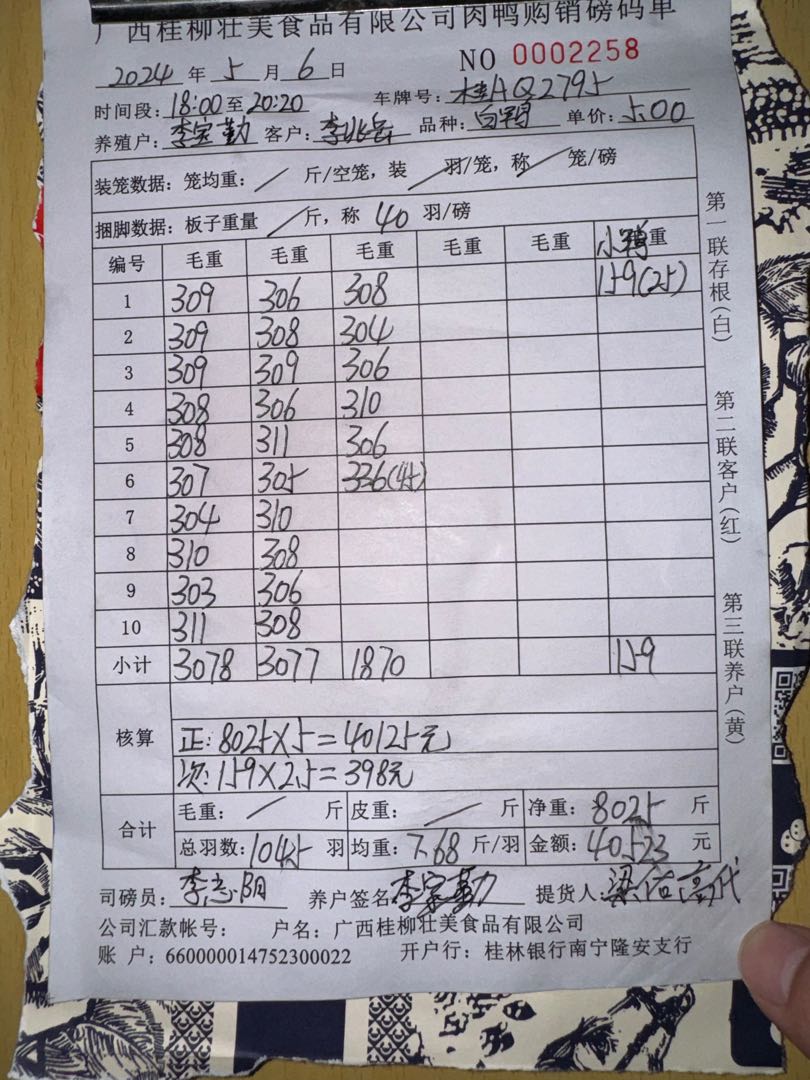 广西桂柳壮美食品有限公司肉鸭购销磅码单
2024 年 5 月 6 日 NO 0002258
时间段: 18:00 至 20:20 车牌号: 桂AQ2795
养殖户: 李宝勤 客户: 李兆岳 品种: 白鸭 单价: 5.00
装笼数据: 笼均重: / 斤/空笼, 装 / 羽/笼, 称 / 笼/磅
捆脚数据: 板子重量 / 斤, 称 40 羽/磅
编号 毛重 毛重 毛重 毛重 毛重 小鸭重
1 309 306 308 159(25)
2 309 308 304
3 309 309 306
4 308 306 310
5 308 311 306
6 307 305 336(45)
7 304 310
8 310 308
9 303 306
10 311 308
小计 3078 3077 1870 159
核算
正: 8025×5=40125元
次: 159×2.5=398元
合计 毛重: / 斤 皮重: / 斤 净重: 8025 斤
总羽数: 1045 羽 均重: 7.68 斤/羽 金额: 40523 元
司磅员: 李志阳 养户签名: 李宝勤 提货人: 梁 代
公司汇款帐号: 户名: 广西桂柳壮美食品有限公司
账 户: 660000014752300022 开户行: 桂林银行南宁隆安支行
第一联存根(白)
第二联客户(红)
第三联养户(黄)